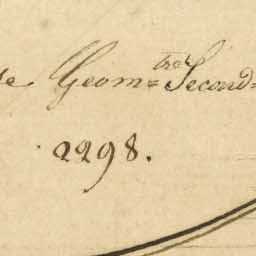 Geom=trek Second=
2298.